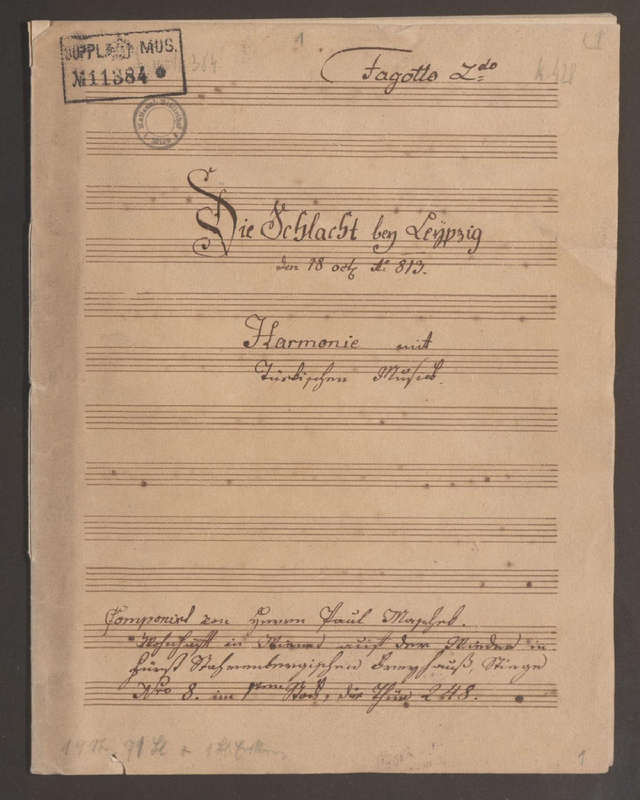 SUPPL. MUS.
№ 11384
1
Fagotto 2do
Die Schlacht bey Leÿpzig
den 18 octb Ao 813.
Harmonie mit
Türkischen Musick.
Componirt von Herrn Paul Maschek.
Wohnhaft in Wienn auf der Wieden in
Fürst Stahrenbergischen Freyhauß, Stiege
Nro 8. im 1sten Stock, die Thür 248.
1